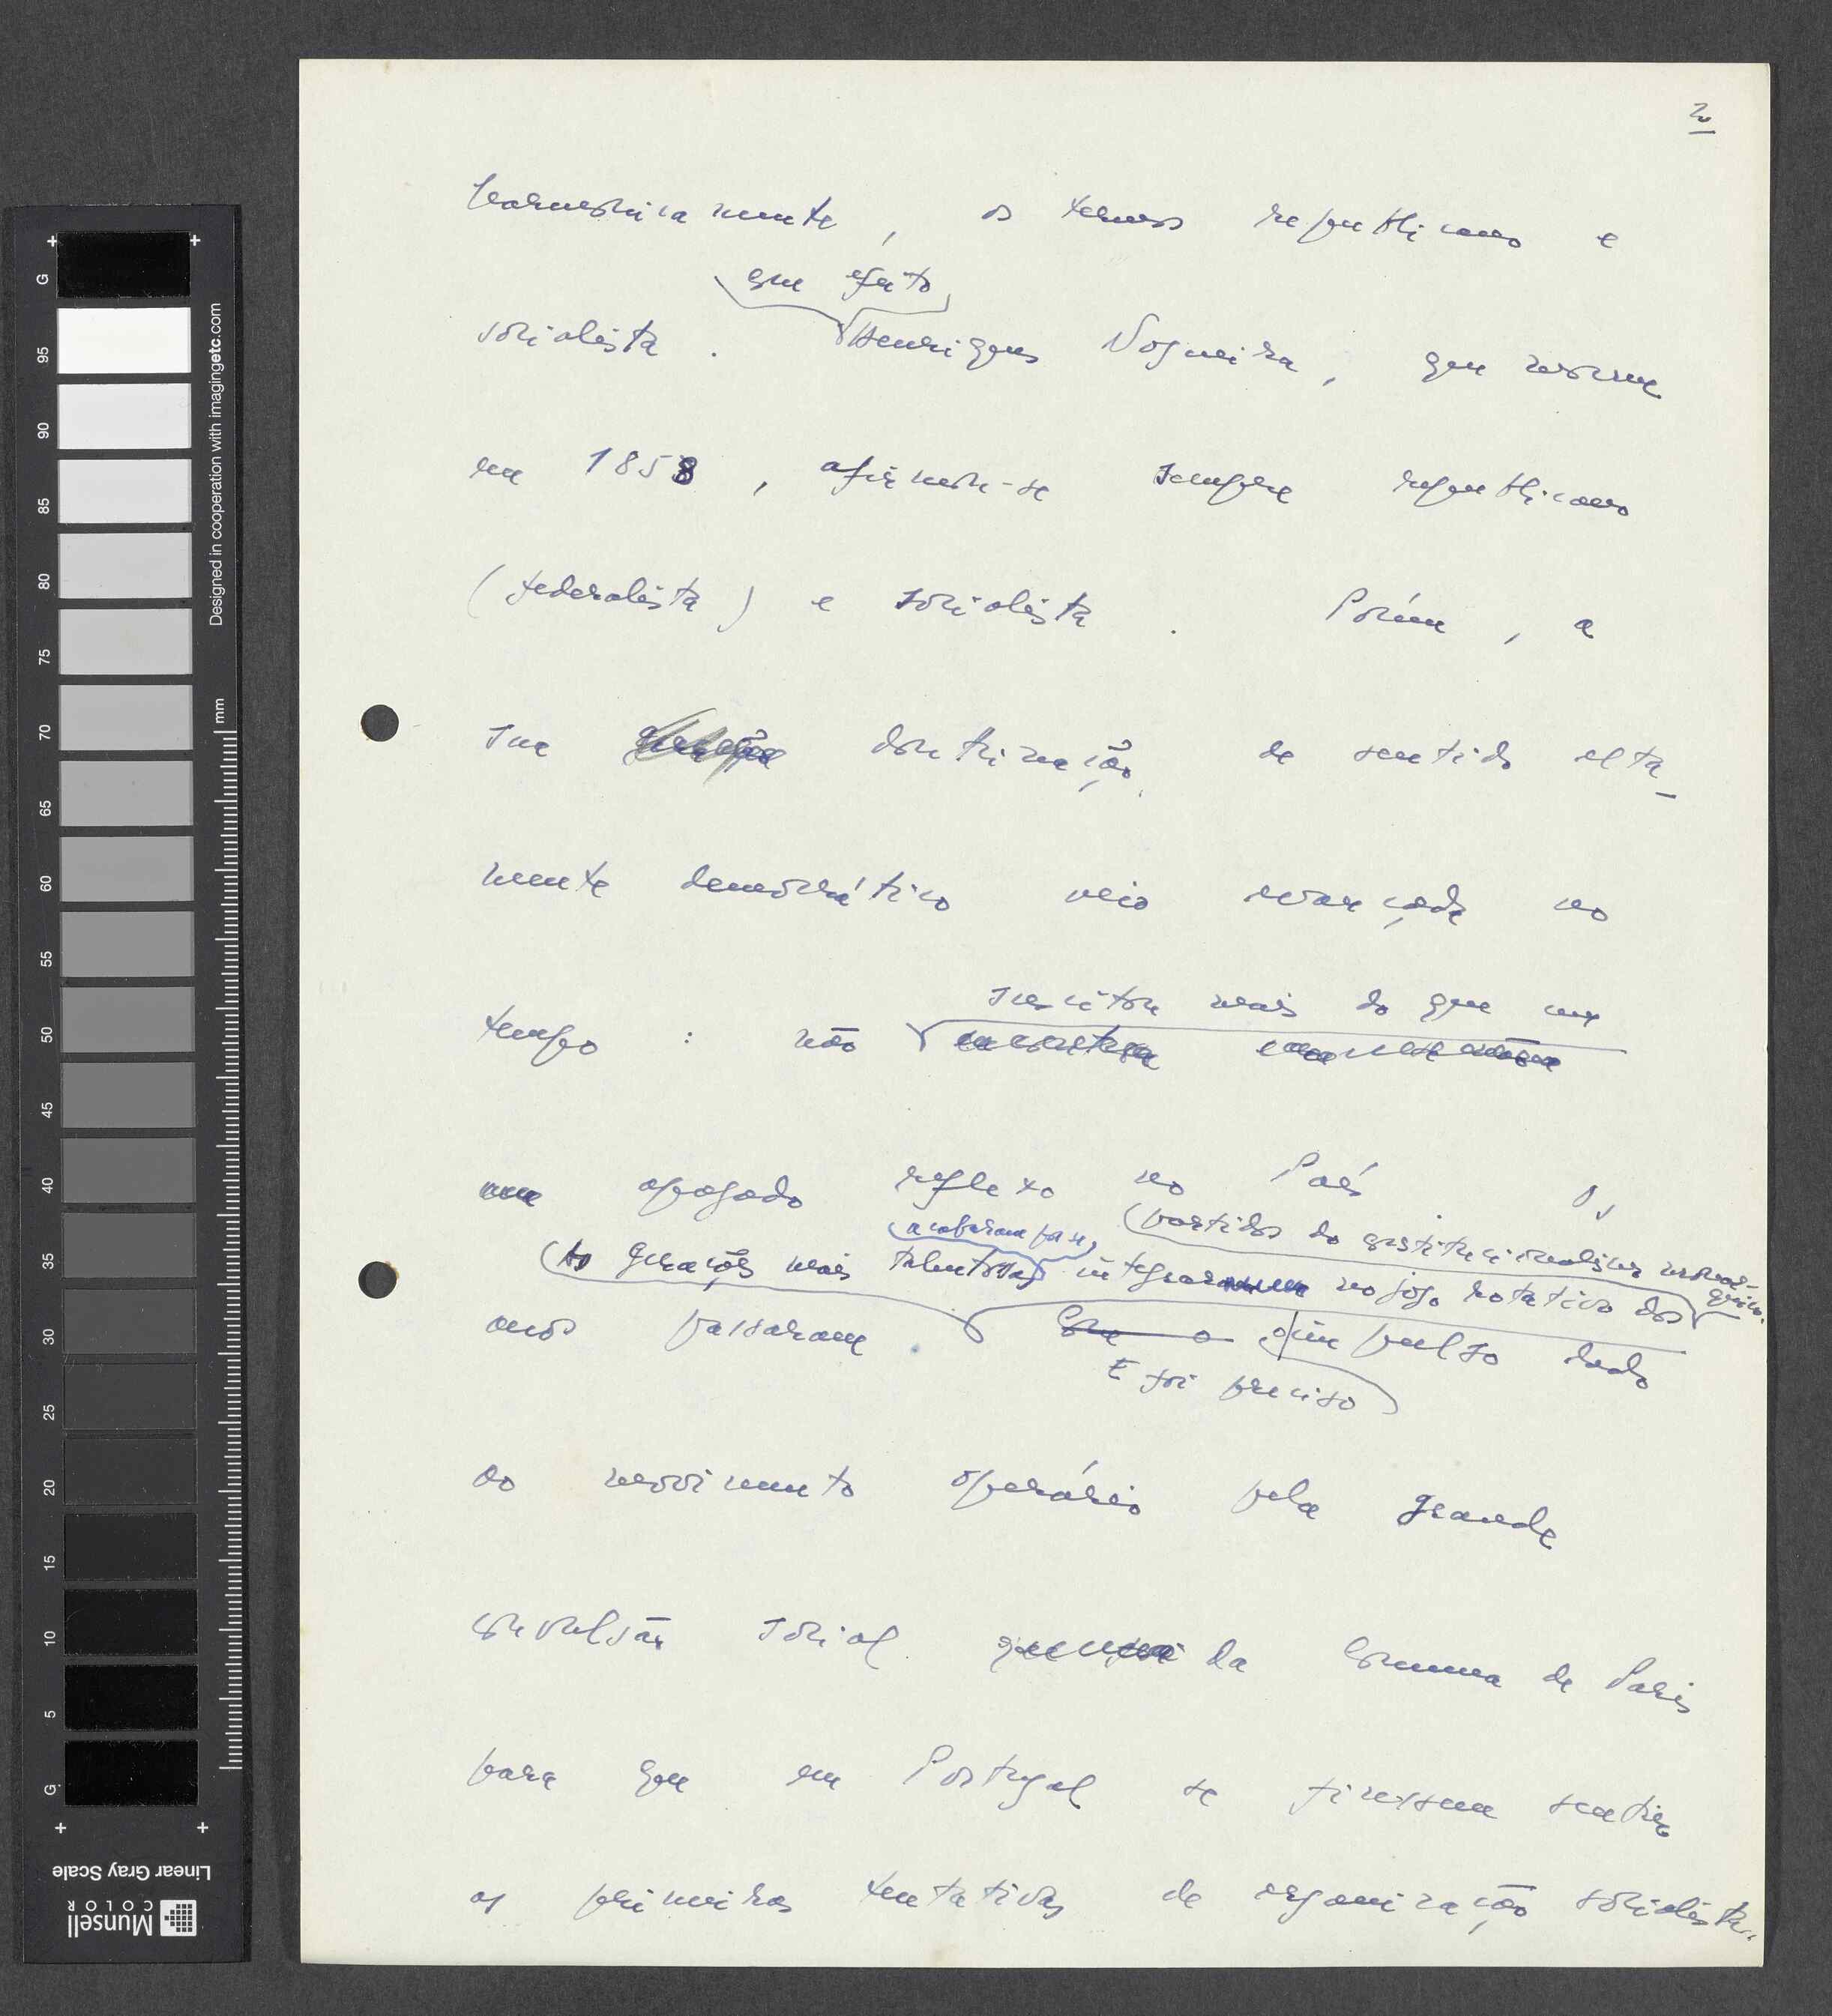 2
harmonicamente, os temas republicano e
Com efeito
socialista. Henriques Nogueira, que morre
em 1858, afirmou-se sempre republicano
(federalista) e socialista. Porém, a
sua doutrinação, de sentido alta-
mente democrático veio avançada no
suscitou mais do que um
tempo: não
apagado reflexo no País. Os
partidos do constitucionalismo monár-
quico.
acabaram por se
As gerações mais talentosas integrar no jogo rotativo dos
anos passaram. Com o o impulso dado
E foi preciso
ao movimento operário pela grande
convulsão social da Comuna de Paris
para que em Portugal se fizessem sentir
as primeiras tentativas de organização socialista.
G
95
90
85
80
75
70
65
60
55
50
45
40
35
30
25
20
15
10
5
G
mm
Designed in cooperation with imagingetc.com
Linear Gray Scale
Munsell
COLOR